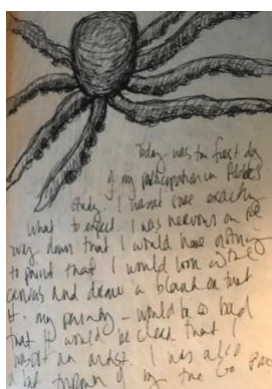 Today was the first day
of my participation in
study. I wasn't sure exactly
what to expect. I was nervous on the
way down that I would have nothing
to paint that I would look at the
canvas and draw a blank or that
it - my painting - would be so bad
that it would be clear that I
wasn't an artist. I was also
a bit by the Go Pro